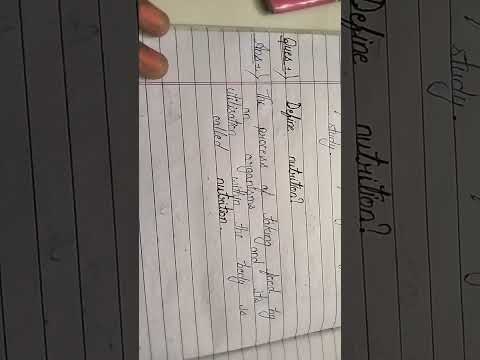 study.
Define nutrition?
study.
Ques:-) Define nutrition?
Ans:-) The process of taking food by
an organisms and its
utilisation within the body is
called nutrition.